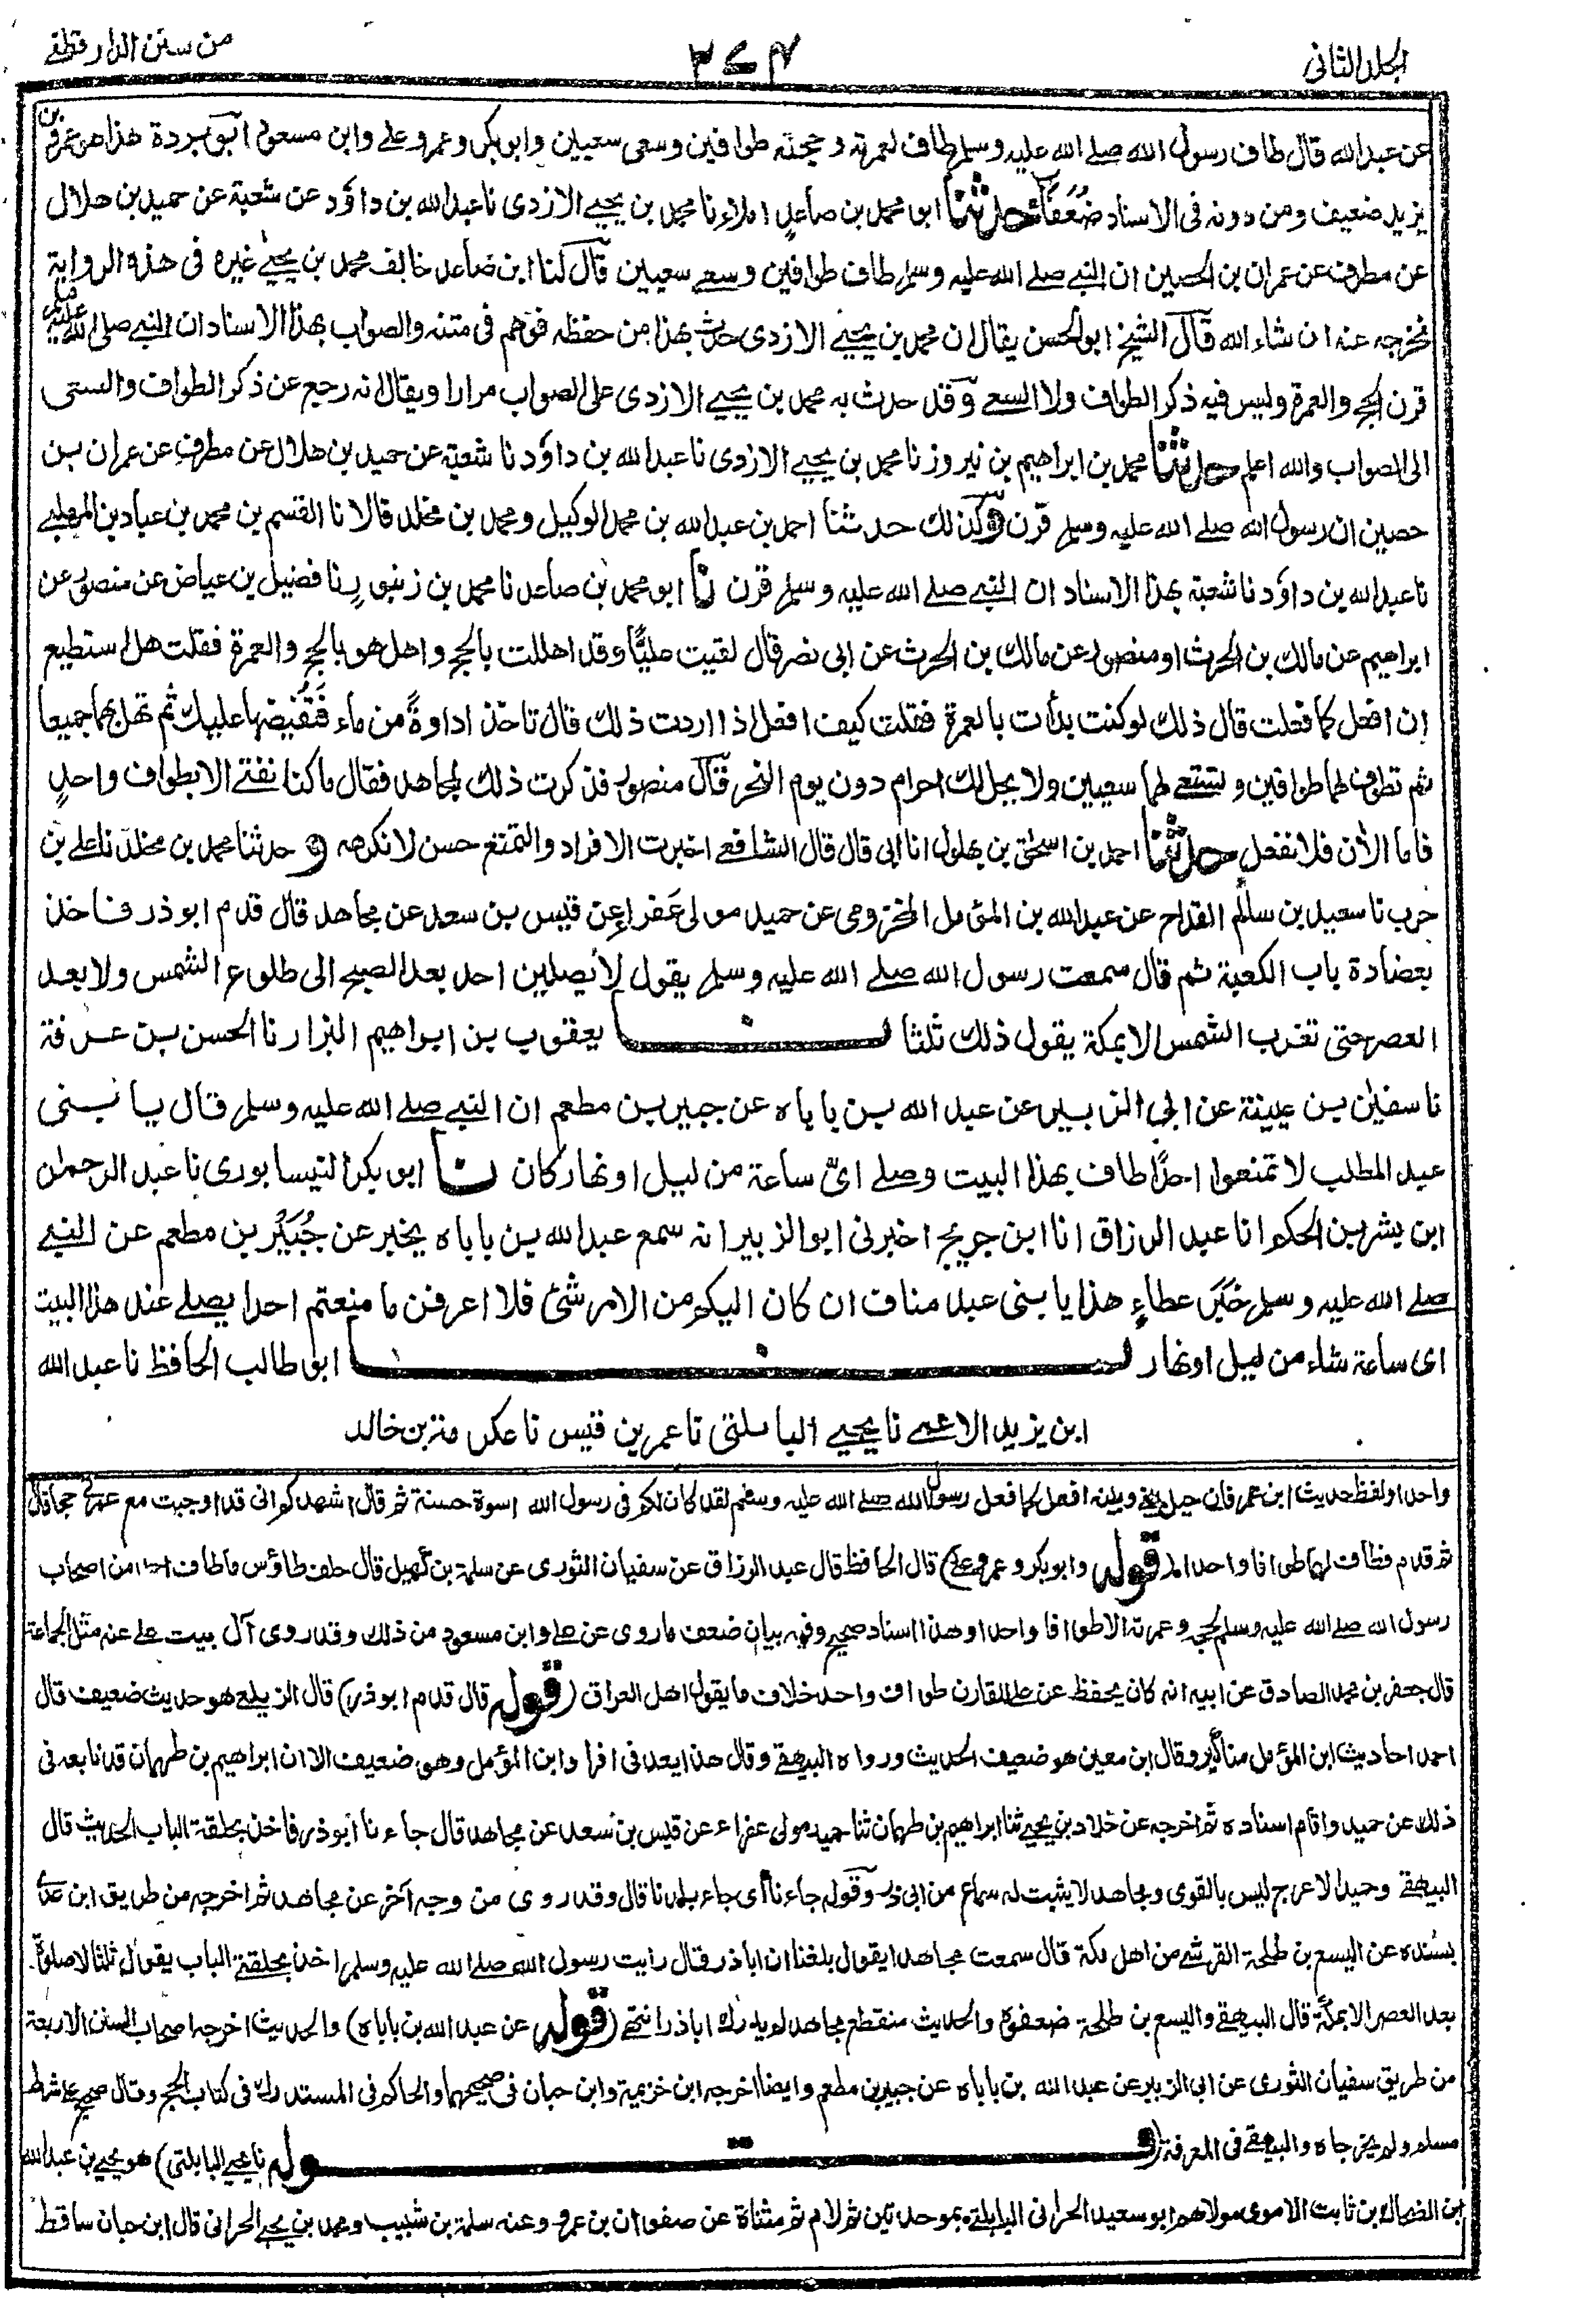 الجلد الثانى
٢٧٤
من سنن الدارقطنے
عن عبد الله قال طاف رسول الله صلے الله عليه وسلم طاف لعمرته وحجته طوافين وسعى سعيين وابو بكر وعمر وعلے وابن مسعود ابو بردة هذا هو عمرو بن
يزيد ضعيف ومن دونه فى الاسناد ضُعَفَاءُ حدثنا ابو محمد بن صاعدٍ املاء نا محمد بن يحيے الازدى نا عبد الله بن داؤد عن شعبة عن حميد بن هلال
عن مطرف عن عمران بن الحصين ان النبے صلے الله عليه وسلم طاف طوافين وسعے سعيين قال لنا ابن صاعد خالف محمد بن يحيےٰ غيره فى هذه الرواية
نخرجه عنه ان شاء الله قال الشيخ ابو الحسن يقال ان محمد بن يحيے الازدى حدث بهذا من حفظه فوهم فى متنه والصواب بهذا الاسناد ان النبے صلى الله عليه
قرن الحج والعمرة وليس فيه ذكر الطواف ولا السعے وقد حدث به محمد بن يحيے الازدى على الصواب مرارا ويقال انه رجع عن ذكر الطواف والسعى
الى الصواب والله اعلم حدثنا محمد بن ابراهيم بن نيروز نا محمد بن يحيے الازدى نا عبد الله بن داؤد نا شعبة عن حميد بن هلال عن مطرفٍ عن عمران بن
حصين ان رسول الله صلے الله عليه وسلم قرن وكذلك حدثنا احمد بن عبد الله بن محمد الوكيل ومحمد بن مخلد قالا نا القسم بن محمد بن عباد بن المهلبے
نا عبد الله بن داؤد نا شعبة بهذا الاسناد ان النبے صلے الله عليه وسلم قرن نا ابو محمد بن صاعد نا محمد بن زنبورٍ نا فضيل بن عياض عن منصور عن
ابراهيم عن مالك بن الحرث او منصور عن مالك بن الحرث عن ابى نصر قال لقيت عليًّا وقد اهللت بالحج واهل هو بالحج والعمرة فقلت هل استطيع
ان افعل كما فعلت قال ذلك لو كنت بدأت بالعمرة فقلت كيف افعل اذا اردت ذلك قال تاخذ اداوةً من ماء فتفيضها عليك ثم تهل بهما جميعا
ثم تطوف لهما طوافين وتسعے لهما سعيين ولا يحل لك احرام دون يوم النحر قال منصور فذكرت ذلك لمجاهد فقال ما كنا نفتے الا بطواف واحدٍ
فاما الاٰن فلا نفعل حدثنا احمد بن اسحٰق بن بهلول انا ابى قال قال الشافعے اخبرت الافراد والتمتع حسن لا نكرهه و حدثنا محمد بن مخلد نا على بن
حرب نا سعيد بن سالم القداح عن عبد الله بن المؤمل المخزومى عن حميد مولى عَفراءِ عن قيس بن سعد عن مجاهد قال قدم ابو ذر فاخذ
بعضادة باب الكعبة ثم قال سمعت رسول الله صلے الله عليه وسلم يقول لا يصلين احد بعد الصبح الى طلوع الشمس ولا بعد
العصر حتى تغرب الشمس الا بمكة يقول ذلك ثلثا نا يعقوب بن ابراهيم البزار نا الحسن بن عرفة
نا سفيٰن بن عيينة عن ابى الزبير عن عبد الله بن باباه عن جبير بن مطعم ان النبے صلے الله عليه وسلم قال يا بنى
عبد المطلب لا تمنعوا احدًا طاف بهذا البيت وصلے اىّ ساعة من ليل او نهار كان نا ابو بكر النيسابورى نا عبد الرحمٰن
ابن بشر بن الحكم انا عبد الرزاق انا ابن جريج اخبرنى ابو الزبير انه سمع عبد الله بن باباه يخبر عن جُبَيْرُ بن مطعم عن النبے
صلے الله عليه وسلم خَبَر عطاءٍ هذا يا بنى عبد مناف ان كان اليكم من الامر شئ فلا اعرفن ما منعتم احدا يصلے عند هذا البيت
اى ساعة شاء من ليل او نهار نا ابو طالب الحافظ نا عبد الله
ابن يزيد الاعمے نا يحيے البابلتى نا عمر بن قيس نا عكرمة بن خالد
واحد او لفظ حديث ابن عمر فان حيل بينے وبينه افعل كما فعل رسول الله صلے الله عليه وسلم لقد كان لكم فى رسول الله اسوة حسنة ثم قال اشهدكم انى قد اوجبت مع عمرتى حجا قال
ثم قدم فطاف لهما طوافا واحدا الخ قوله وابو بكر وعمر وعلے) قال الحافظ قال عبد الرزاق عن سفيان الثورى عن سلمة بن كهيل قال حلف طاؤس ما طاف احد من اصحاب
رسول الله صلے الله عليه وسلم لحجه وعمرته الا طوافا واحدا وهذا اسناد صحيح وفيه بيان ضعف ما روى عن علے وابن مسعود من ذلك وقد روى آل بيت علے عنه مثل الجماعة
قال جعفر بن محمد الصادق عن ابيه انه كان يحفظ عن علے للقارن طواف واحد خلاف ما يقول اهل العراق (قوله قال قدم ابو ذر) قال الزيلعے هو حديث ضعيف قال
احمد احاديث ابن المؤمل مناكير وقال ابن معين هو ضعيف الحديث ورواه البيهقے وقال هذا يعد فى افراد ابن المؤمل وهو ضعيف الا ان ابراهيم بن طهمان قد تابعه فى
ذلك عن حميد واقام اسناده ثم اخرجه عن خلاد بن يحيے ثنا ابراهيم بن طهمان ثنا حميد مولى عفراء عن قيس بن سعد عن مجاهد قال جاءنا ابو ذر فاخذ بحلقة الباب الحديث قال
البيهقے وحميد الاعرج ليس بالقوى ومجاهد لا يثبت له سماع من ابى ذر وقوله جاءنا أى جاء بلدنا قال وقد روى من وجه آخر عن مجاهد ثم اخرجه من طريق ابن عدى
بسنده عن اليسع بن طلحة القرشے من اهل مكة قال سمعت مجاهدا يقول بلغنا ان اباذر قال رايت رسول الله صلے الله عليه وسلم اخذ بحلقتے الباب يقول ثلثا لا صلوة
بعد العصر الا بمكة قال البيهقے واليسع بن طلحة ضعفوه والحديث منقطع مجاهد لم يدرك اباذر انتهے (قوله عن عبد الله بن باباه) والحديث اخرجه اصحاب السنن الاربعة
من طريق سفيان الثورى عن ابى الزبير عن عبد الله بن باباه عن جبير بن مطعم وايضا اخرجه ابن خزيمة وابن حبان فى صحيحهما والحاكم فى المستدرك فى كتاب الحج وقال صحيح على شرط
مسلم ولم يخرجاه والبيهقے فى المعرفة (قوله نا يحيے البابلتى) هو يحيے بن عبد الله
ابن الضحاك بن ثابت الاموى مولاهم ابو سعيد الحرانى البابلتے بموحدتين ثم لام ثم مثناة عن صفوان بن عمرو وعنه سلمة بن شبيب ومحمد بن يحيے الحرانى قال ابن حبان ساقط